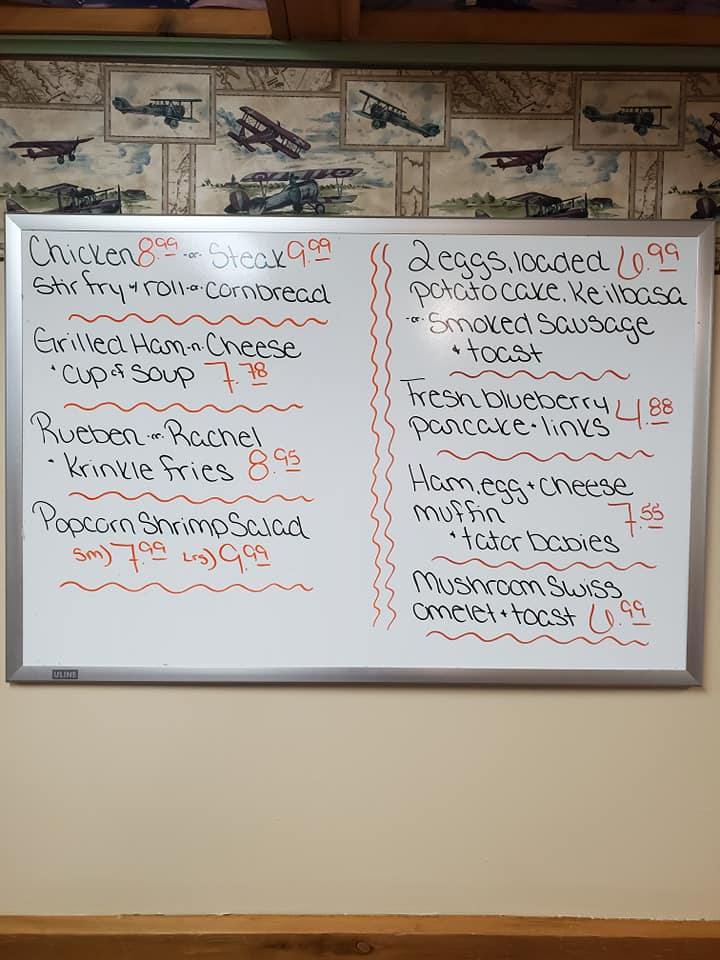 Chicken 8.99 -or- Steak 9.99
Stir fry w/ roll -or- cornbread
Grilled Ham-n-Cheese
+ cup of soup 7.78
Rueben -or- Rachel
+ Krinkle fries 8.95
Popcorn Shrimp Salad
sm) 7.99 Lrg) 9.99
2 eggs, loaded 6.99
potato cake, Keilbasa
-or- Smoked Sausage
+ toast
Fresh blueberry
pancake + links 4.88
Ham, egg + cheese
muffin 7.55
+ tator babies
Mushroom Swiss
omelet + toast 6.99
ULINE